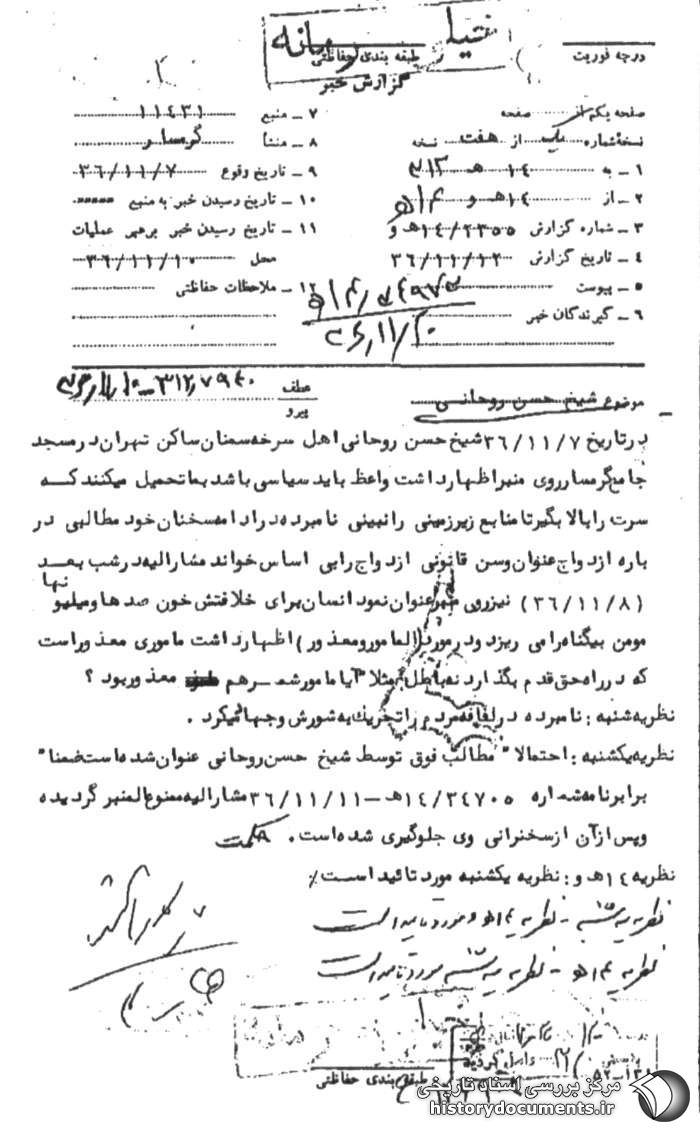 خیلی محرمانه
درجه فوریت
طبقه بندی حفاظتی
گزارش خبر
صفحه یکم از صفحه
نسخه شماره یک از هفت نسخه
۱ ـ به ۱۴ هـ ۳۱۲
۲ ـ از ۱۴هـ و
۳ ـ شماره گزارش ۱۴/۲۳۵۵هـ و
۴ ـ تاریخ گزارش ۳۶/۱۱/۱۲
۵ ـ پیوست
۶ ـ گیرندگان خبر
۷ ـ منبع ۱۱۴۳۱
۸ ـ منشأ گرمسار
۹ ـ تاریخ وقوع ۳۶/۱۱/۷
۱۰ ـ تاریخ رسیدن خبر به منبع
۱۱ ـ تاریخ رسیدن خبر برهبر عملیات
محل ۳۶/۱۱/۱۰
۱۲ ـ ملاحظات حفاظتی
موضوع شیخ حسن روحانی
عطف
پیرو
درتاریخ ۳۶/۱۱/۷ شیخ حسن روحانی اهل سرخه سمنان ساکن تهران در مسجد
جامع گرمسار روی منبر اظهار داشت واعظ باید سیاسی باشد بما تحمیل میکنند کـه
سرت را بالا بگیر تا منابع زیرزمینی را نبینی نامبرده در ادامه سخنان خود مطالبی در
باره ازدواج عنوان وسن قانونی ازدواج را بی اساس خواند مشارالیه در شب بعـد
(۳۶/۱۱/۸) نیز روی منبر عنوان نمود انسان برای خلافتش خون صدها و میلیو نها
مومن بیگناه را می ریزد و در مورد (المامور و معذور) اظهار داشت ماموری معذور است
که در راه حق قدم بگذارد نه باطل مثلا" آیا مامور شمـر هم معذور بود ؟
نظریه شنبه : نامبرده در لفافه مردم را تحریک به شورش و جهاد میکرد .
نظریه یکشنبه : احتمالا" مطالب فوق توسط شیخ حسن روحانی عنوان شده است ضمنا"
برابر نامه شماره ۱۴/۲۴۷۰۵هـ ـ ۳۶/۱۱/۱۱ مشارالیه ممنوع المنبر گردیده
وپس از آن از سخنرانی وی جلوگیری شده است . حکمت
نظریه ۱۴هـ و : نظریه یکشنبه مورد تائید اسـت ٪
نظریه سه شنبه ـ نظریه ۱۴هـ و مورد تایید است
نظریه ۱۴هـ ـ نظریه سه شنبه مورد تایید است
طبقه بندی حفاظتی
مرکز بررسی اسناد تاریخی
historydocuments.ir